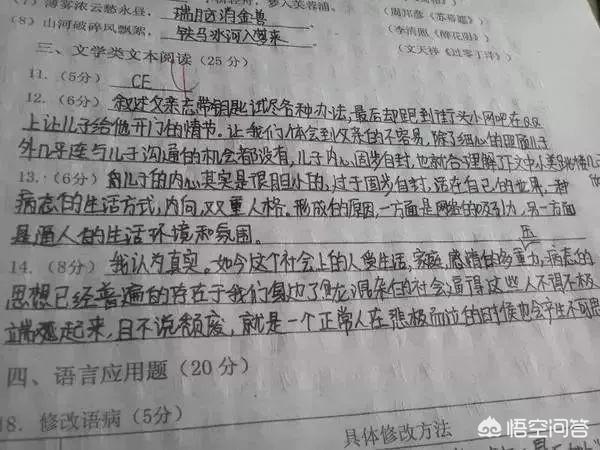 (7) 薄雾浓云愁永昼, 瑞脑消金兽 (周邦彦《苏幕遮》)
(8) 山河破碎风飘絮, 铁马冰河入梦来 (李清照《醉花阴》)
(文天祥《过零丁洋》)
三、文学类文本阅读(25分)
11.(5分) CE
12.(6分) 叙述父亲忘带钥匙试尽各种办法,最后却跑到街头小网吧在QQ
上让儿子给他开门的情节。让我们体会到父亲的不容易,除了细心的照顾儿子
外几乎连与儿子沟通的机会都没有,儿子内心固步自封,也就
13.(6分) 儿子的内心其实是很胆小的,过于固步自封,活在自己的世界,一种
病态的生活方式,内向,双重人格。形成的原因,一方面是网络的吸引力,另一方面
是逼人的生活环境和氛围。
14.(8分) 我认为真实。如今这个社会上的人受生活,家庭,感情的多重压力,病态的
思想已经普遍的存在于我们身边了,鱼龙混杂的社会逼得这些人不得不极
端起来,且不说颓废,就是一个正常人在悲极而泣的时候也会产生不可思
四、语言应用题(20分)
18.修改语病(5分)
具体修改方法
悟空问答